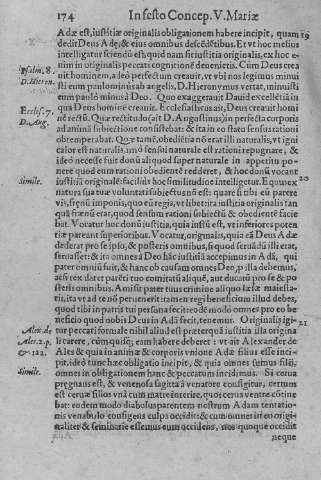 174 In festo Concep. V. Mariæ
Adæ est, iustitiæ originalis obligationem habere incipit, quam 19
dedit Deus Adę, & eius omnibus descēdētibus. Et vt hoc melius
intelligatur sciendū est, quid nam sit iustitia originalis, ex hoc e-
nim in originalis peccati cognitionē deuenietis. Cùm Deus crea
Psalm. 8. uit hominem, adeò perfectum creauit, vt vbi nos legimus minui
D. Hieron. sti eum paulo minùs ab angelis, D. Hieronymus vertat, minuisti
eum paulò minus à Deo. Quo exaggerauit Dauid excellētiā in
Eccles. 7. qua Deus hominē creauit. Ecclesiastes ait, Deus creauit homi
D. Aug. nē rectū. Quæ rectitudo (ait D. Augustinus) in perfecta corporis
ad animā subiectione consistebat: & ita in eo statu sensus rationi
obtemperabat. Quæ tamē, obediētia nō erat illi naturalis, vt igni
calor est naturalis, imò sensui naturale est rationi repugnare, &
ideò necesse fuit donū aliquod super naturale in appetitu po-
nere quod eum rationi obedientē redderet, & hoc donū vocant 20
Simile. iustitiā originalē: facilè ex hoc similitudine intelligetur. Equus ex
natura sua tuæ voluntati subiectus nō est: quare si tibi eū parere
vis, frenū imponis, quo eū regis, vt libet: ita iustitia originalis tan
quā frænū erat, quod sensum rationi subiectū & obedientē facie
bat. Vocatur hoc donū iustitia, quia iustū est, vt inferiores poten
tiæ pareant superioribus. Vocatur, originalis, quia eā Deus Adæ
dederat pro se ipso, & posteris omnibus, si quod seruādū illi erat,
seruasset: & ita omnes à Deo hāc iustitiā accepimus in Adā, qui
pater omniū fuit, & hanc ob causam omnes Deo, p illa debemus,
ac si rex daret patri tuo comitatū aliquē, ut ducatū pro se & po
steris omnibus. Amisit pater tuus crimine aliquo læsæ maiesta-
tis, ita vt ad te nō peruenerit: tamen regi beneficium illud debes,
quod tibi in patris tui persona fecit: eodē modo omnes pro eo be
neficio quod nobis Deus in Adā fecit, tenemur. Originalis igi- 21
Alex. de tur peccati formale nihil aliud est præterquā iustitia illa origina
Ales. 2. p. li carere, cùm quisq; eam habere deberet: vt ait Alexander de
& 122. Ales & quia in animæ & corporis vnione Adæ filius esse inci-
pit, ideò tunc hæc obligatio incipit, & quia omnes sumus filii,
Simile. omnes in obligationem hanc & peccatum incidimus. Si cerua
prægnans est, & venenosa sagitta à venatore consigitur, certum
est ceruæ filios vnā cum matre interire, quos cerua ventre cōtine
bat: eodem modo diabolus parentem nostrum Adam tentatio-
nis venabulo consigens culpa occidit: & cum omnes in eo origi-
naliter & seminariè essemus eum occidens, nos quoque occidit
neque